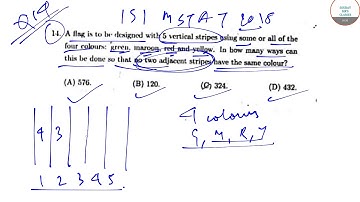 Q14
ISI MSTAT 2018
14. A flag is to be designed with 5 vertical stripes using some or all of the
four colours: green, maroon, red and yellow. In how many ways can
this be done so that no two adjacent stripes have the same colour?
(A) 576. (B) 120. (C) 324. (D) 432.
4 3
1 2 3 4 5
4 colours
G, M, R, Y